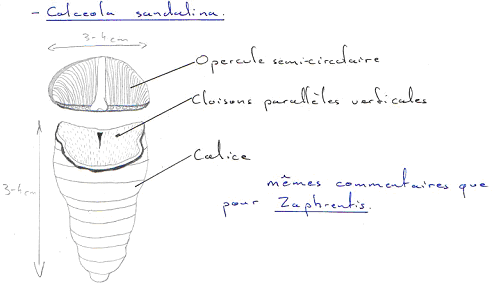 - Calceola sandalina.
3-4 cm
Opercule semi-circulaire
Cloisons parallèles verticales
Calice
3-4 cm
mêmes commentaires que
pour Zaphrentis.